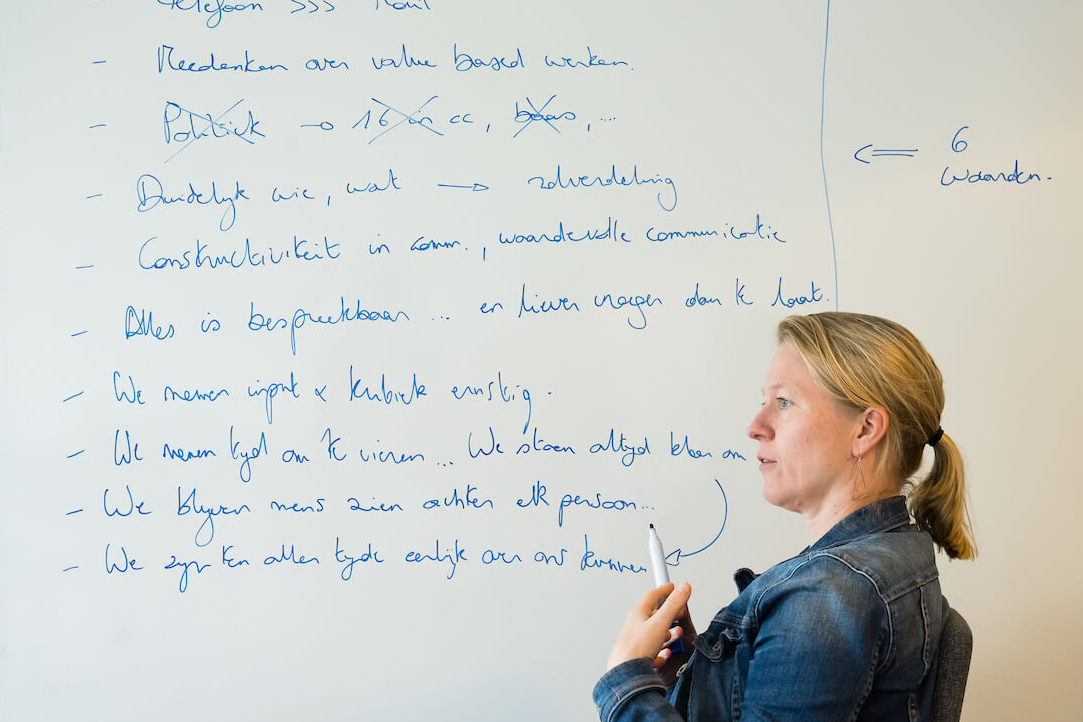 Telefoon >>> Mail
- Meedenken over value based werken.
- Politiek → 16 in cc, baas, ...
- Duidelijk wie, wat → rolverdeling
- Constructiviteit in comm., waardevolle communicatie
- Alles is bespreekbaar ... en liever vroeger dan te laat.
- We nemen input & kritiek ernstig.
- We nemen tijd om te vieren ... We staan altijd klaar om
- We blijven mens zien achter elk persoon...
- We zijn ten allen tijde eerlijk over ons kunnen
<= 6
waarden.